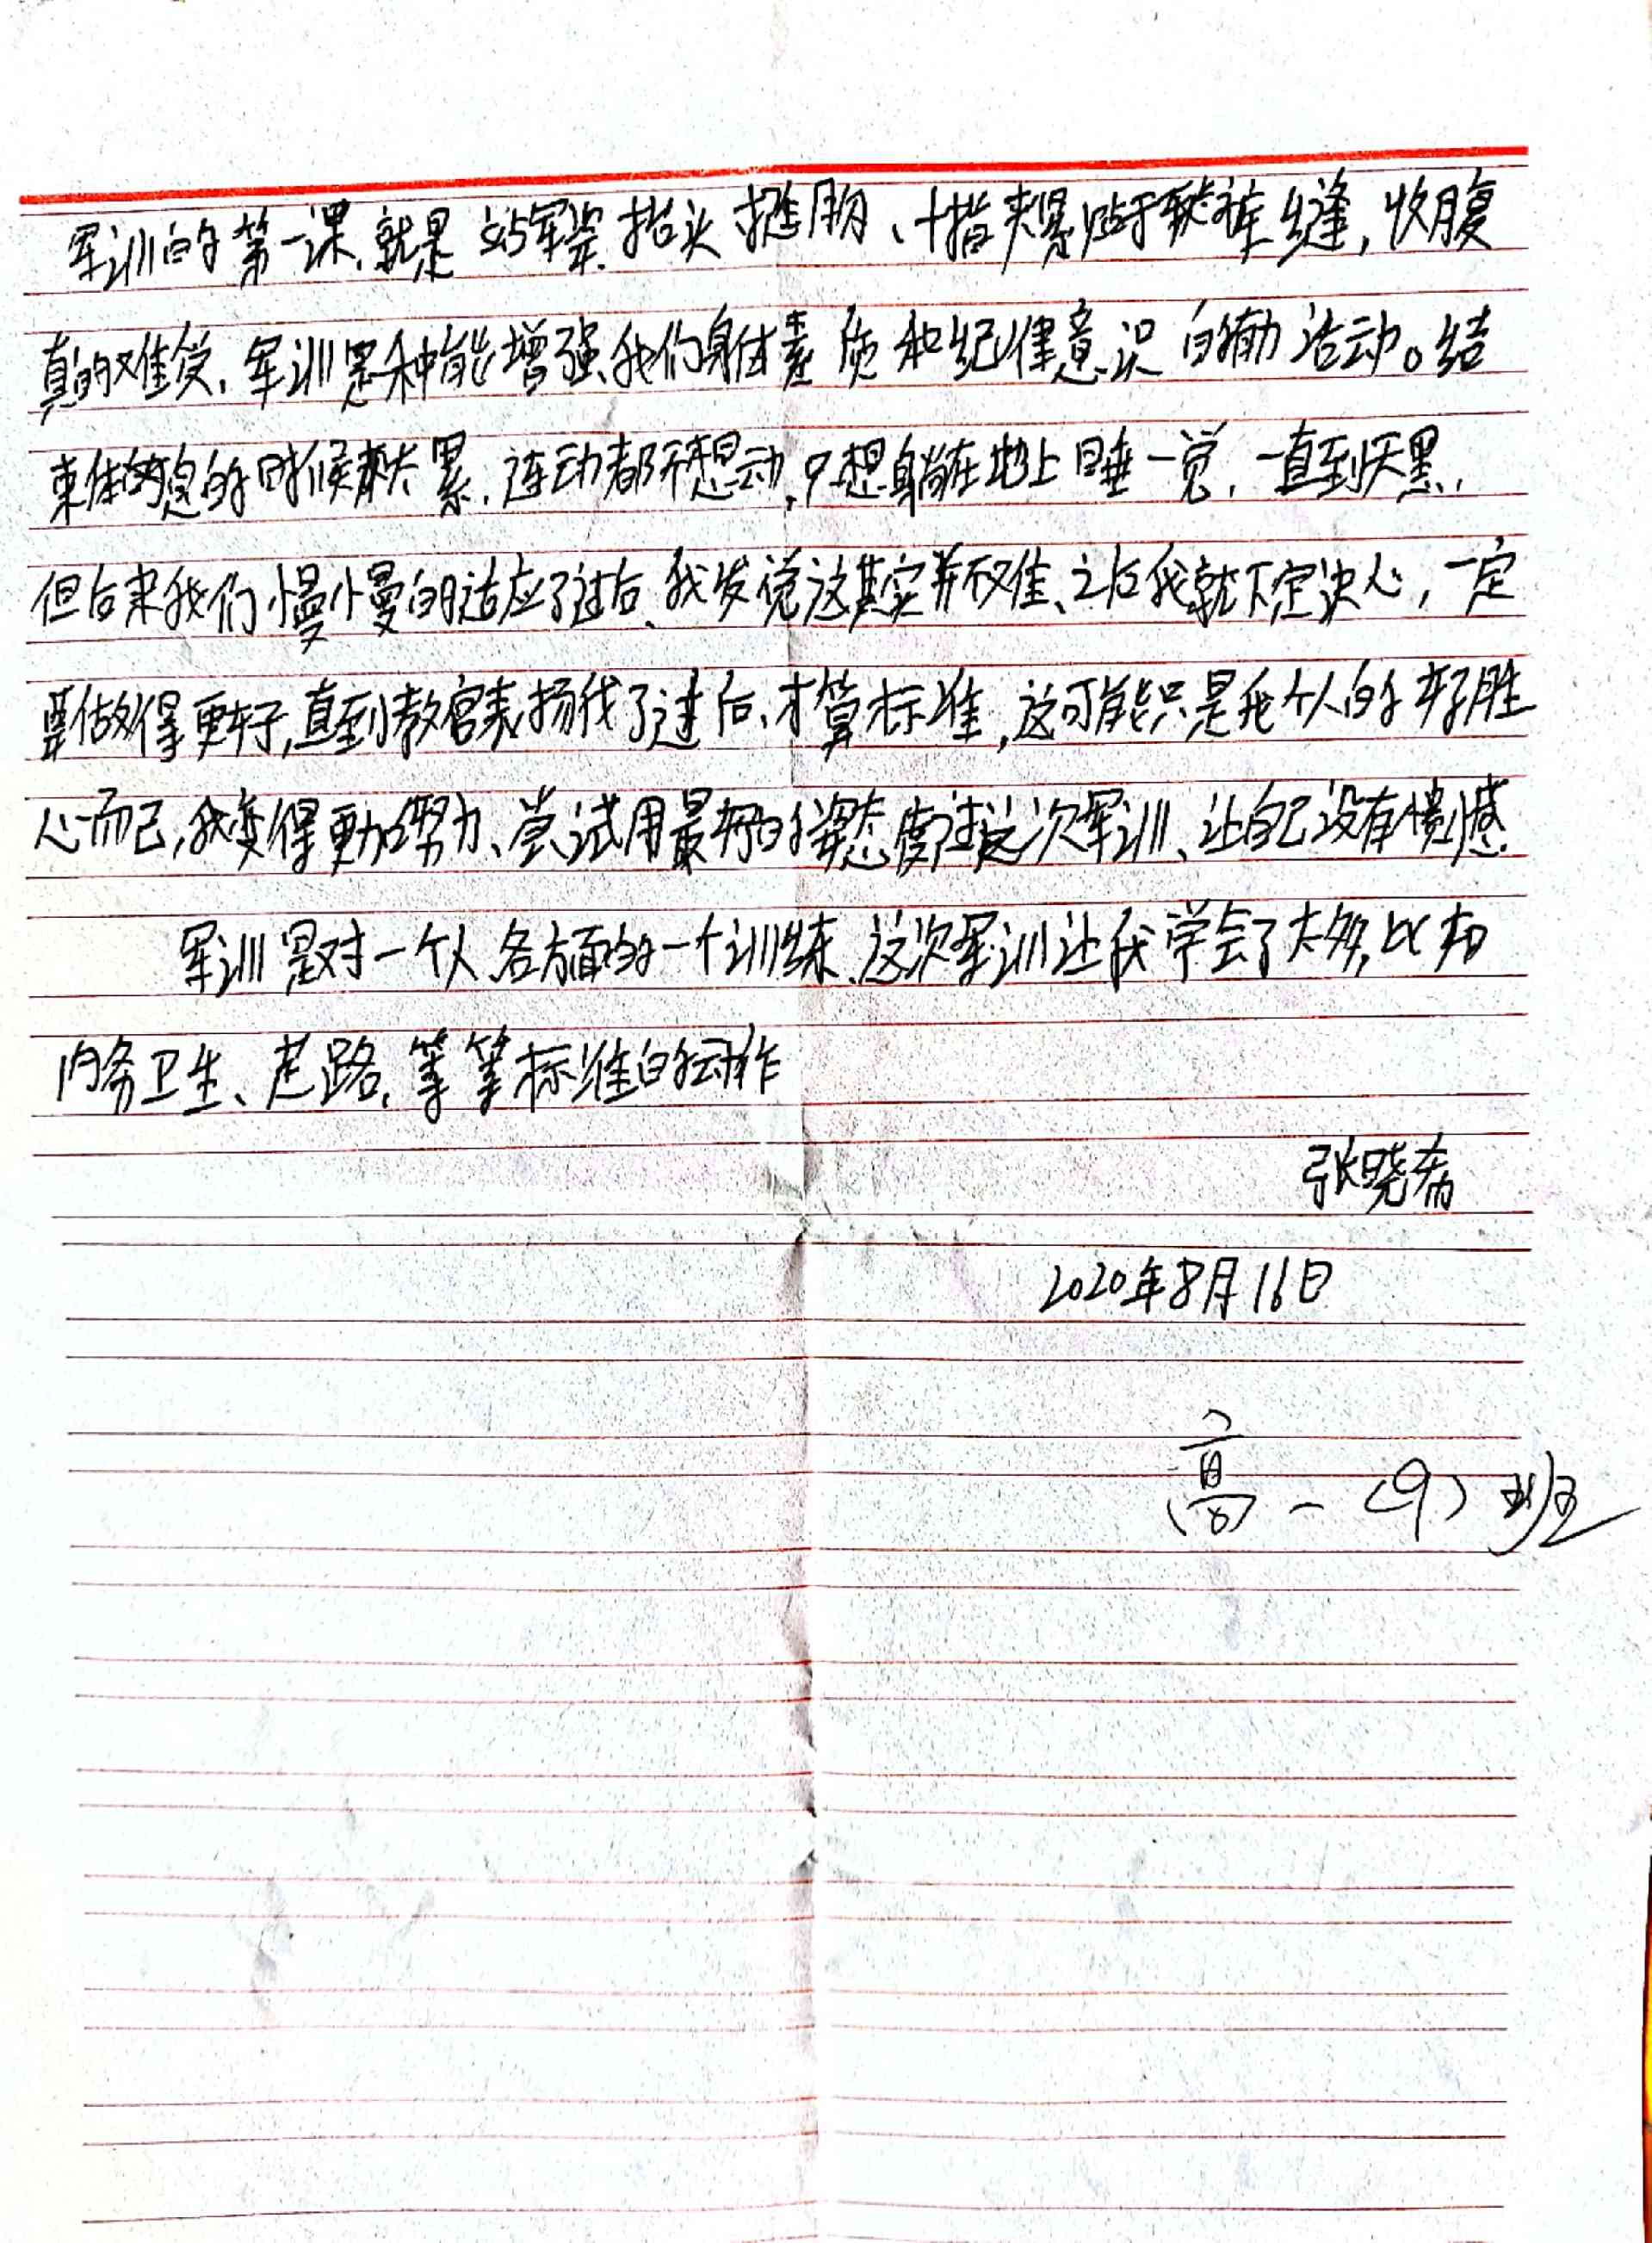 军训的第一课、就是站军姿、抬头挺胸、十指夹紧贴于裤缝,收腹
真的难受、军训是种能增强我们身体素质和纪律意识的活动。结
束休息的时候都太累、连动都不想动,只想躺在地上睡一觉、一直到天黑、
但后来我们慢慢的适应了过后、我发觉这其实并不难、之后我就下定决心,一定
要做得更好,直到教官表扬我了过后、才算标准,这可能只是我个人的好胜
心而已,我变得更加努力、尝试用最好的姿态度过这次军训、让自己没有遗憾.
军训是对一个人各方面的一个训练、这次军训让我学会了太多,比如
内务卫生、走路、等等标准的动作
张晓希
2020年8月16日
高一(9)班